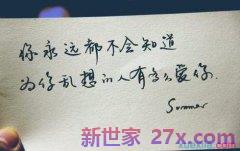 你永远都不会知道
为你乱想的人有多么爱你.
Summer
新世家 27x.com